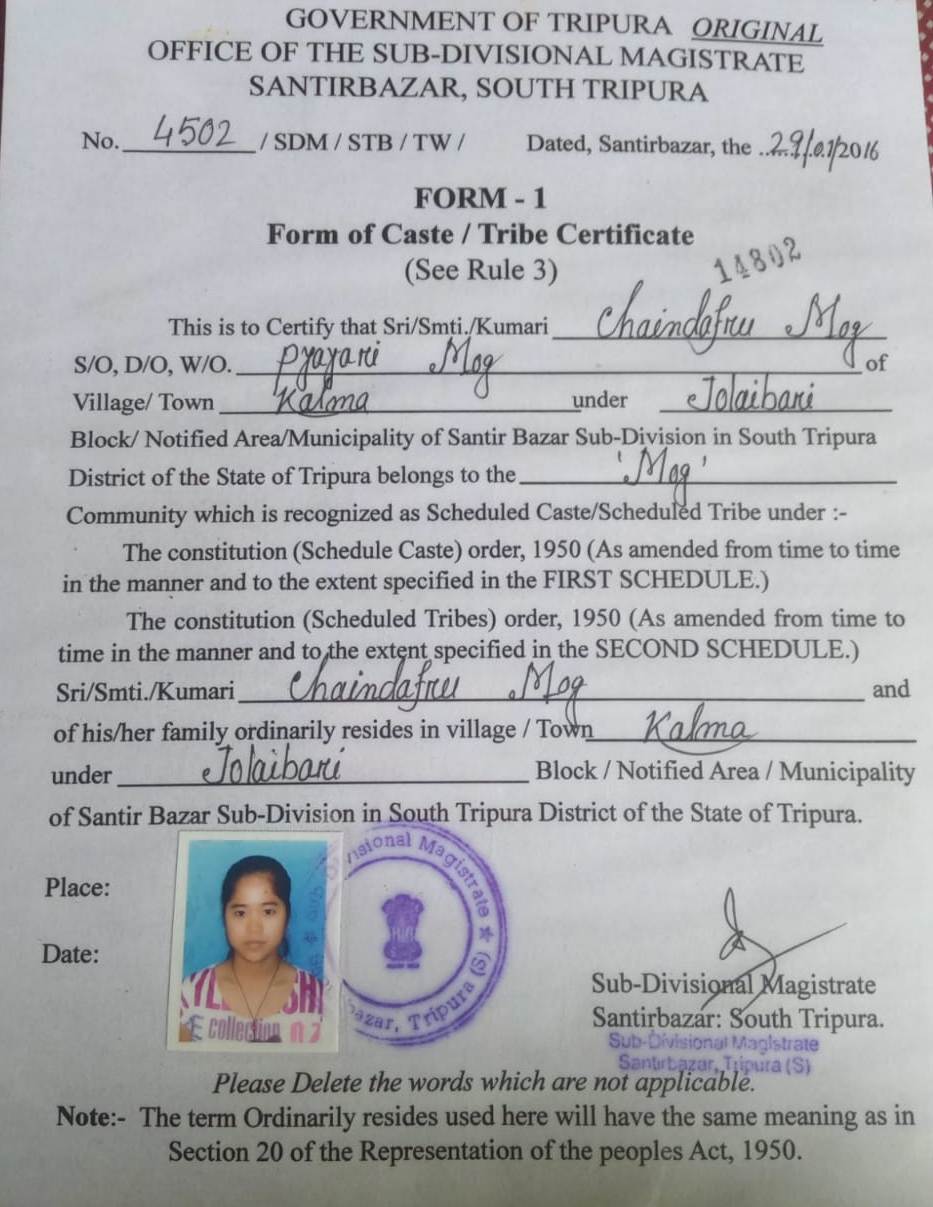 GOVERNMENT OF TRIPURA ORIGINAL
OFFICE OF THE SUB-DIVISIONAL MAGISTRATE
SANTIRBAZAR, SOUTH TRIPURA
No. 4502 / SDM / STB / TW / Dated, Santirbazar, the 29/01/2016
FORM - 1
Form of Caste / Tribe Certificate
(See Rule 3)
14802
This is to Certify that Sri/Smti./Kumari Chaindafru Mog
S/O, D/O, W/O. Pyayari Mog of
Village/ Town Kalma under Jolaibari
Block/ Notified Area/Municipality of Santir Bazar Sub-Division in South Tripura
District of the State of Tripura belongs to the 'Mog'
Community which is recognized as Scheduled Caste/Scheduled Tribe under :-
The constitution (Schedule Caste) order, 1950 (As amended from time to time
in the manner and to the extent specified in the FIRST SCHEDULE.)
The constitution (Scheduled Tribes) order, 1950 (As amended from time to
time in the manner and to the extent specified in the SECOND SCHEDULE.)
Sri/Smti./Kumari Chaindafru Mog and
of his/her family ordinarily resides in village / Town Kalma
under Jolaibari Block / Notified Area / Municipality
of Santir Bazar Sub-Division in South Tripura District of the State of Tripura.
Place:
Date:
collection
Magistrate ★
Tripura (S)
Sub-Divisional Magistrate
Santirbazar: South Tripura.
Sub-Divisional Magistrate
Santirbazar, Tripura (S)
Please Delete the words which are not applicable.
Note:- The term Ordinarily resides used here will have the same meaning as in
Section 20 of the Representation of the peoples Act, 1950.